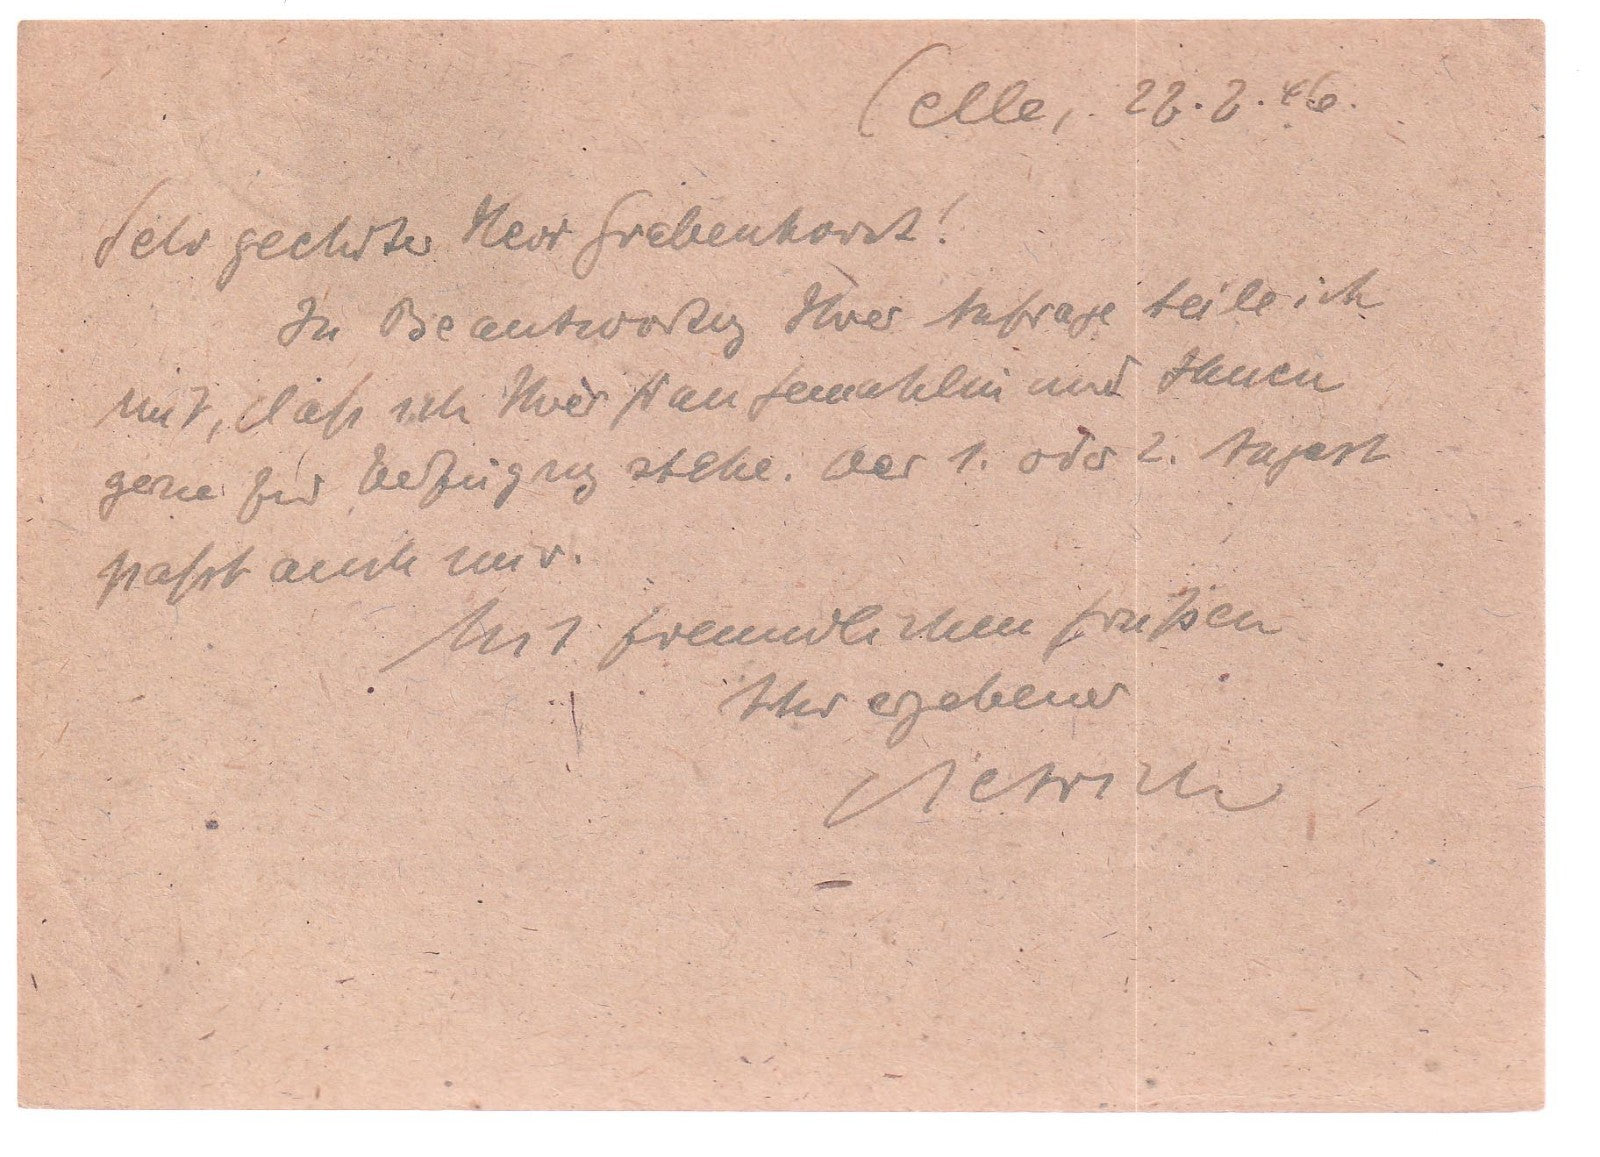 Celle, 22.7.46.
Sehr geehrter Herr Grebenhorst!
In Beantwortung Ihrer Anfrage teile ich
mit, daß ich Ihrer Frau Gemahlin und Ihnen
gerne zur Verfügung stehe. Der 1. oder 2. August
paßt auch mir.
Mit freundlichen Grüßen
Ihr ergebener